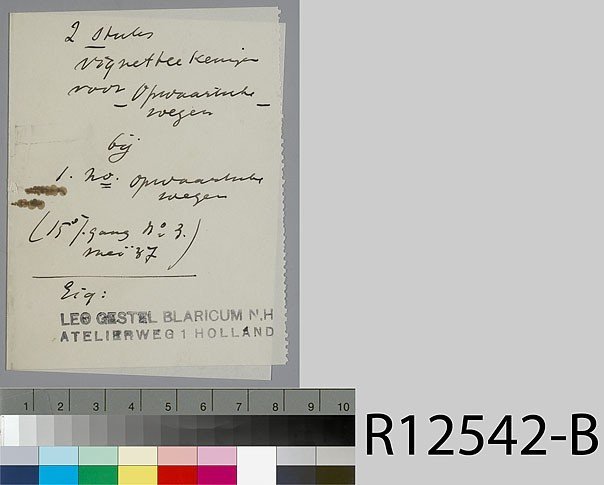 2 stuks
vignetteekeningen
voor Opwaartsche
wegen
bij
1. No. opwaartsche
wegen
(15e j.gang No 3.
mei 37)
Eig:
LEO GESTEL BLARICUM N.H
ATELIERWEG 1 HOLLAND
1 2 3 4 5 6 7 8 9 10
R12542-B